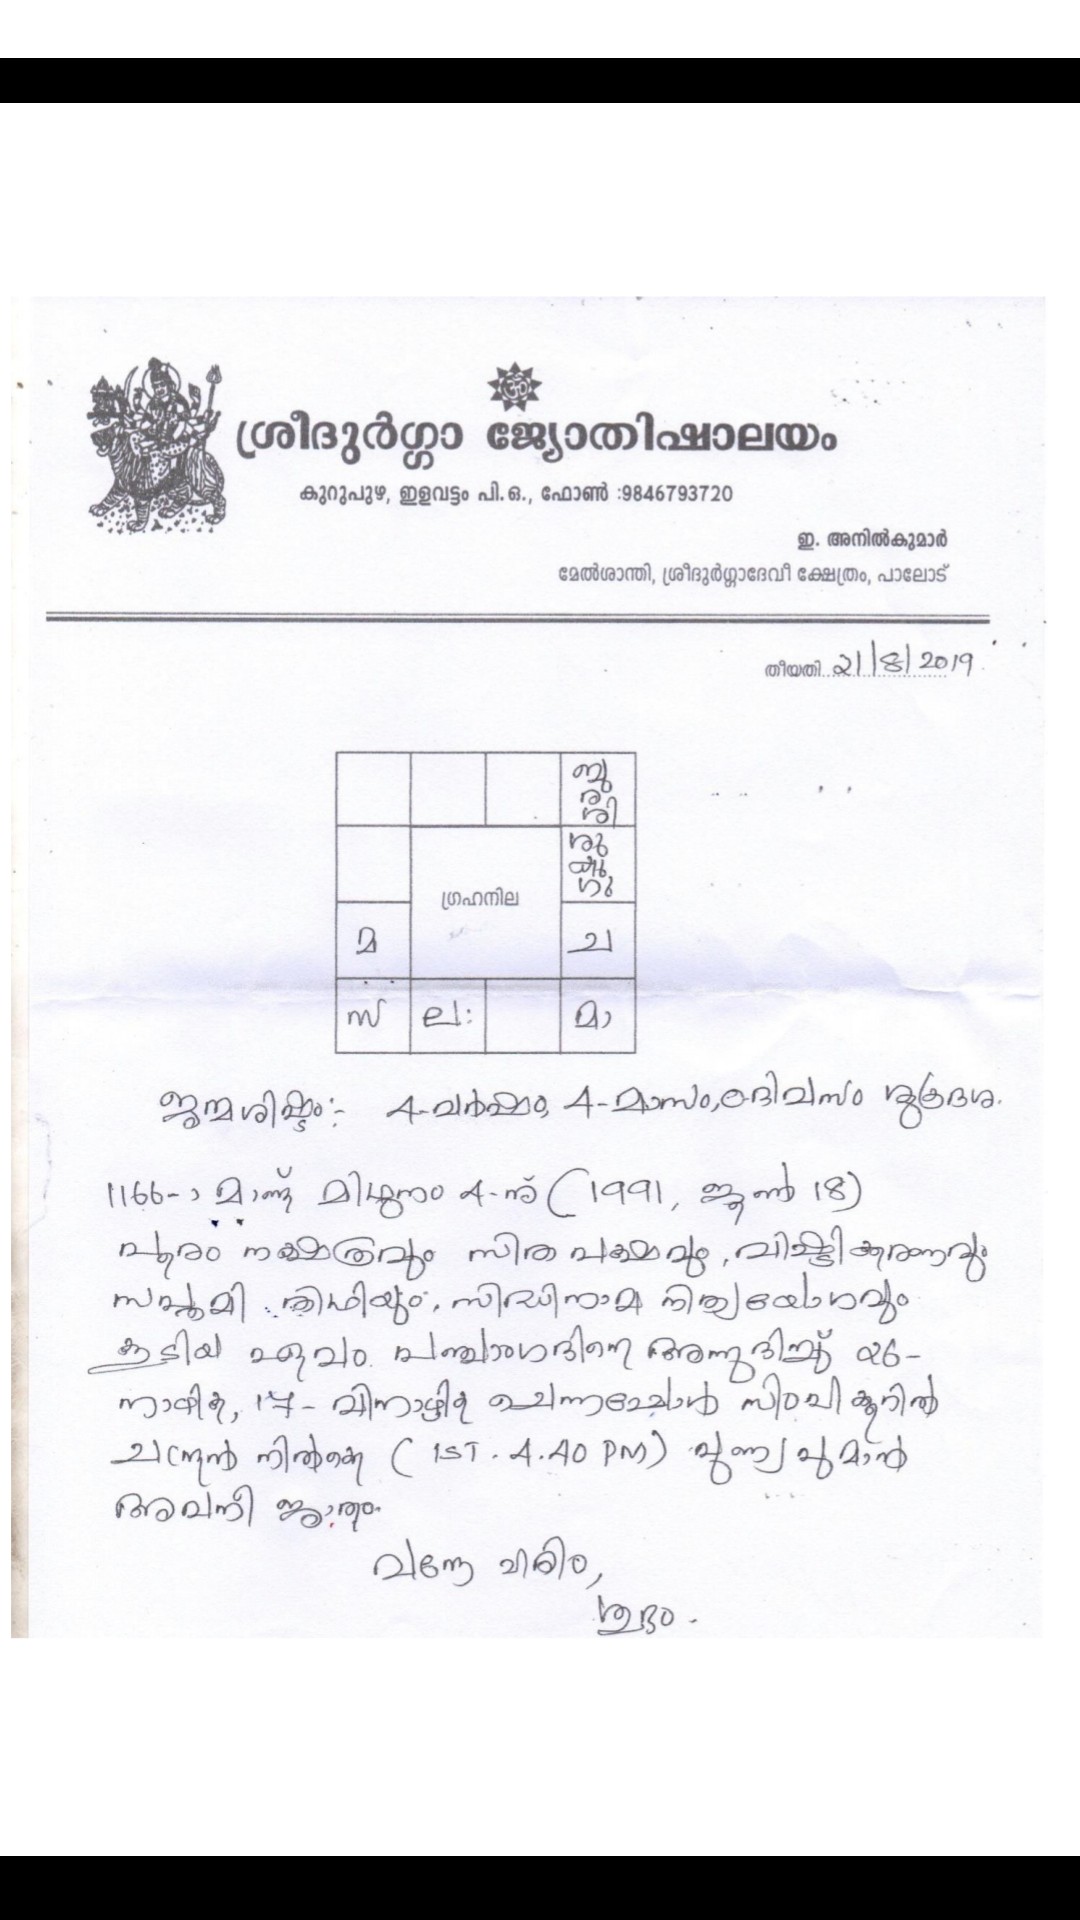 ശ്രീദുർഗ്ഗാ ജ്യോതിഷാലയം
കുറുപുഴ, ഇളവട്ടം പി.ഒ., ഫോൺ :9846793720
ഇ. അനിൽകുമാർ
മേൽശാന്തി, ശ്രീദുർഗ്ഗാദേവീ ക്ഷേത്രം, പാലോട്
തീയതി 21/8/2019
ബു
ര
ശി
ശു
കു
ഗു
ഗ്രഹനില
മ
ച
സ
ല:
മാ
ജന്മശിഷ്ടം:- 4-വർഷം, 4-മാസം, ദിവസം ശുക്രദശ.
1166-ാ മാണ്ട് മിഥുനം 4-ന് (1991, ജൂൺ 18)
പൂരം നക്ഷത്രവും സിത പക്ഷവും, വിഷ്ടികരണവും
സപ്തമി തിഥിയും, സിദ്ധിനാമ നിത്യയോഗവും
കൂടിയ ഏവം പഞ്ചാംഗദിനെ അന്നുദിച്ച് 26-
നാഴിക, 17- വിനാഴിക ചെന്നപ്പോൾ സിംഹക്കൂറിൽ
ചന്ദ്രൻ നിൽക്കെ (IST. 4.40 PM) പുണ്യപുമാൻ
അവനീ ജാതം.
വന്ദേ ചിരം,
ശുഭം.